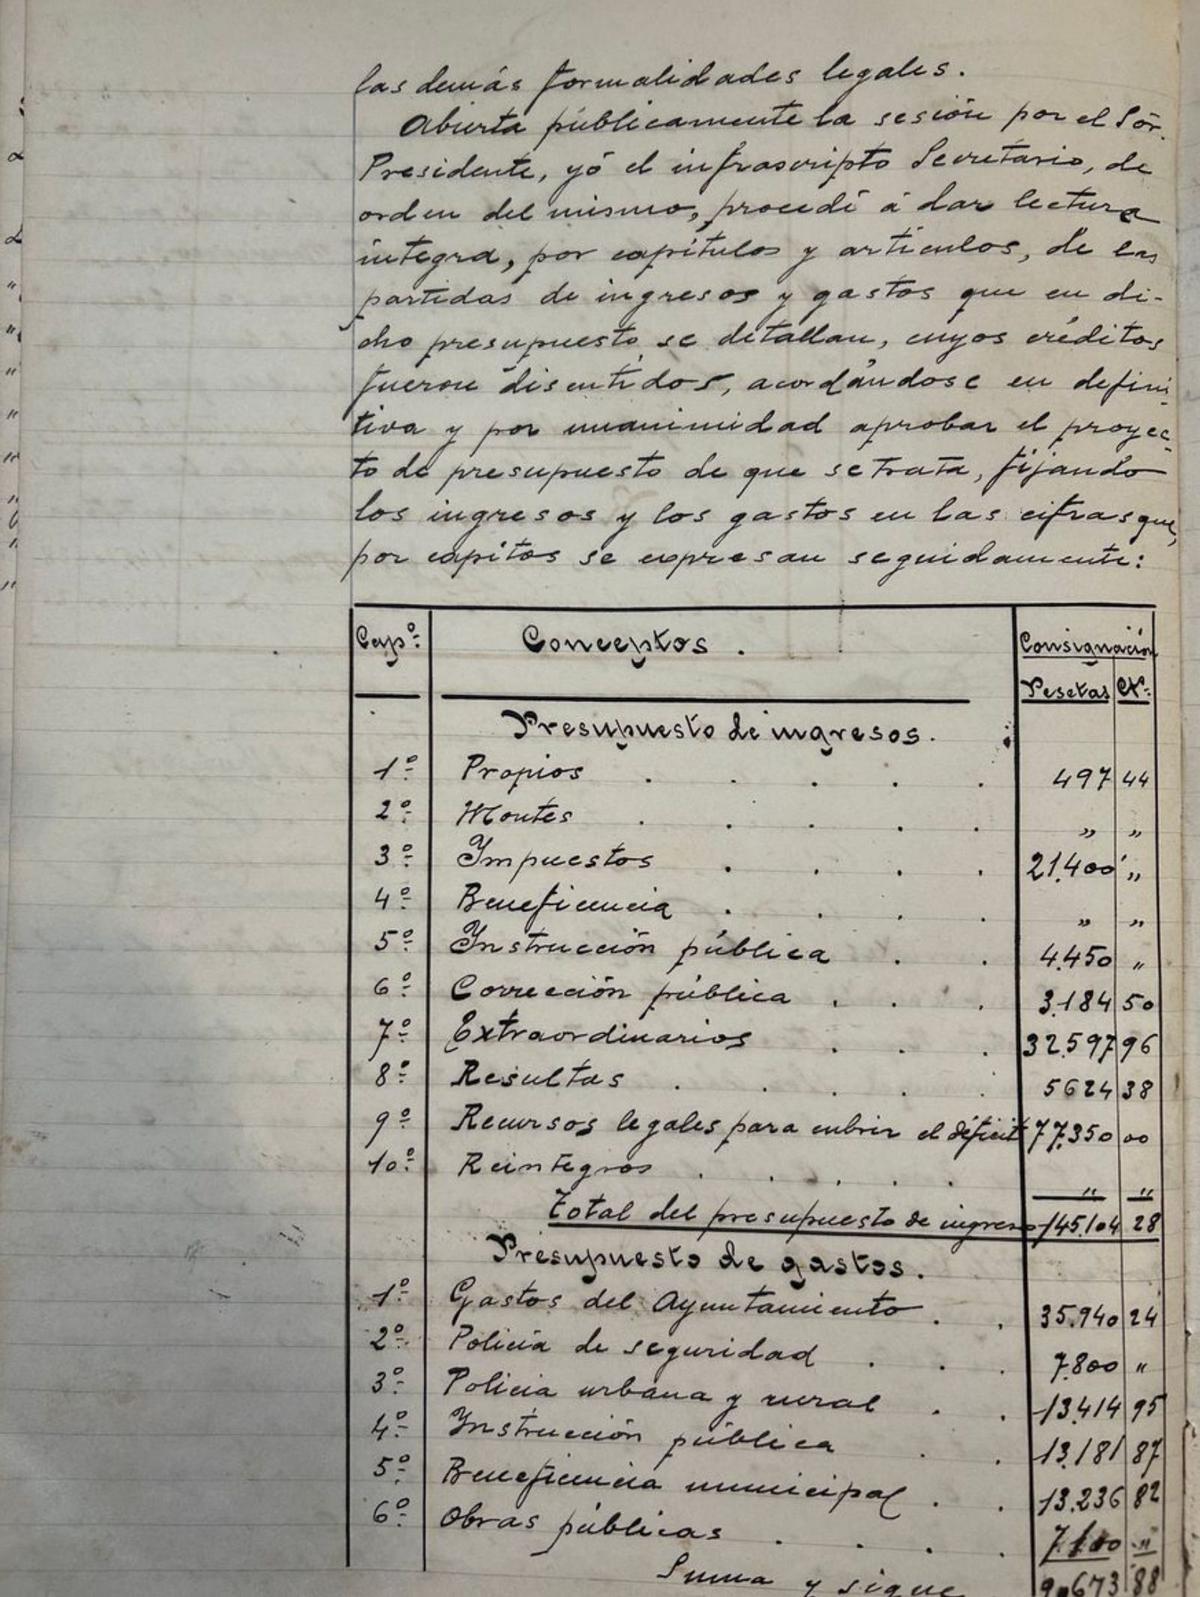 las demás formalidades legales.
Abierta públicamente la sesión por el Sór.
Presidente, yó el infrascripto Secretario, de
orden del mismo, procedí á dar lectura
integra, por capítulos y artículos, de las
partidas de ingresos y gastos que en di-
cho presupuesto se detallan, cuyos créditos
fueron discutidos, acordándose en defini-
tiva y por unanimidad aprobar el proyec-
to de presupuesto de que se trata, fijando
los ingresos y los gastos en las cifras que,
por capitos se expresan seguidamente:
Capº. Conceptos. Consignación
Pesetas Cts.
Presupuesto de ingresos.
1º Propios . . . . . 497 44
2º Montes . . . . . " "
3º Impuestos . . . . 21.400 "
4º Beneficencia . . . . " "
5º Instrucción pública . . 4.450 "
6º Corrección pública . . . 3.184 50
7º Extraordinarios . . . 32.597 96
8º Resultas . . . . . 5624 38
9º Recursos legales para cubrir el déficit 77.350 00
10º Reintegros . . . . . " "
Total del presupuesto de ingresos 145.104 28
Presupuesto de gastos.
1º Gastos del Ayuntamiento . . 35.940 24
2º Policía de seguridad . . . 7.800 "
3º Policía urbana y rural . . 13.414 95
4º Instrucción pública . . 13.181 87
5º Beneficencia municipal . . 13.236 82
6º Obras públicas . . . . 7.100 "
Suma y sigue 90.673 88